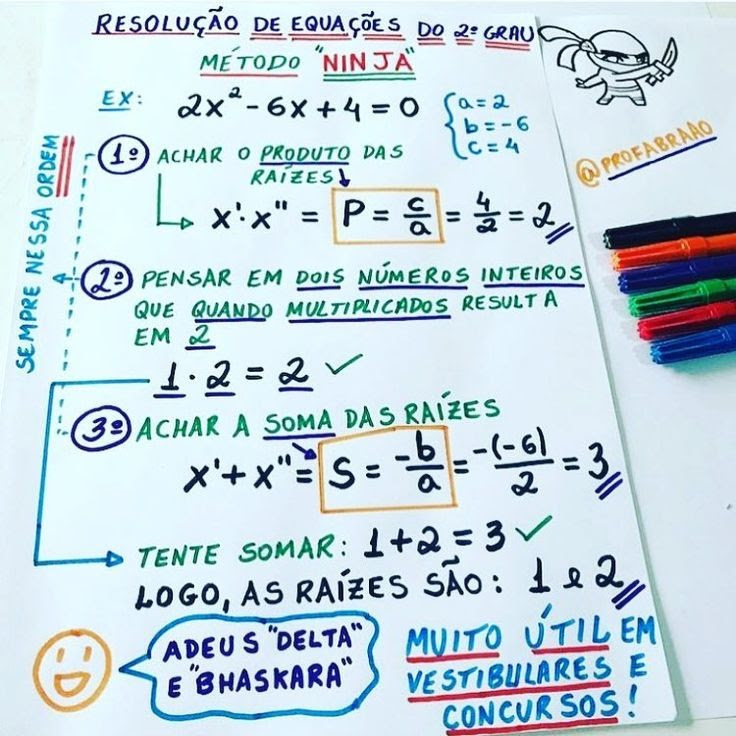 RESOLUÇÃO DE EQUAÇÕES DO 2º GRAU
MÉTODO "NINJA"
EX: 2x² - 6x + 4 = 0 { a = 2
b = -6
c = 4
@PROFABRAAO
SEMPRE NESSA ORDEM
1º ACHAR O PRODUTO DAS
RAÍZES
x' · x" = P = c/a = 4/2 = 2
2º PENSAR EM DOIS NÚMEROS INTEIROS
QUE QUANDO MULTIPLICADOS RESULTA
EM 2
1 · 2 = 2 ✓
3º ACHAR A SOMA DAS RAÍZES
x' + x" = S = -b/a = -(-6)/2 = 3
TENTE SOMAR: 1 + 2 = 3 ✓
LOGO, AS RAÍZES SÃO: 1 e 2
ADEUS "DELTA"
E "BHASKARA"
MUITO ÚTIL EM
VESTIBULARES E
CONCURSOS!